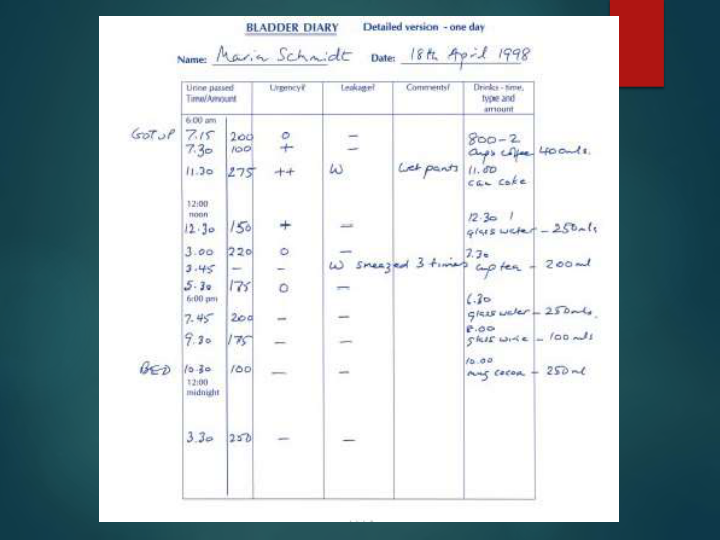 BLADDER DIARY Detailed version - one day
Name: Maria Schmidt Date: 18th April 1998
Urine passed Time/Amount Urgency? Leakage? Comments? Drinks - time, type and amount
6:00 am
Got up 7.15 200 0 - 800-2
7.30 100 + - cups coffee 400mls.
11.30 275 ++ W wet pants 11.00
can coke
12:00
noon
12.30
12.30 150 + - glass water - 250mls
3.00 220 0 -
3.45 - - W sneezed 3 times cup tea - 200ml
5.30 175 0 -
6:00 pm
6.30
7.45 200 - - glass water - 250mls.
8.00
9.30 175 - - glass wine - 100mls
10.00
BED 10.30 100 - - mug cocoa - 250ml
12:00
midnight
3.30 250 - -